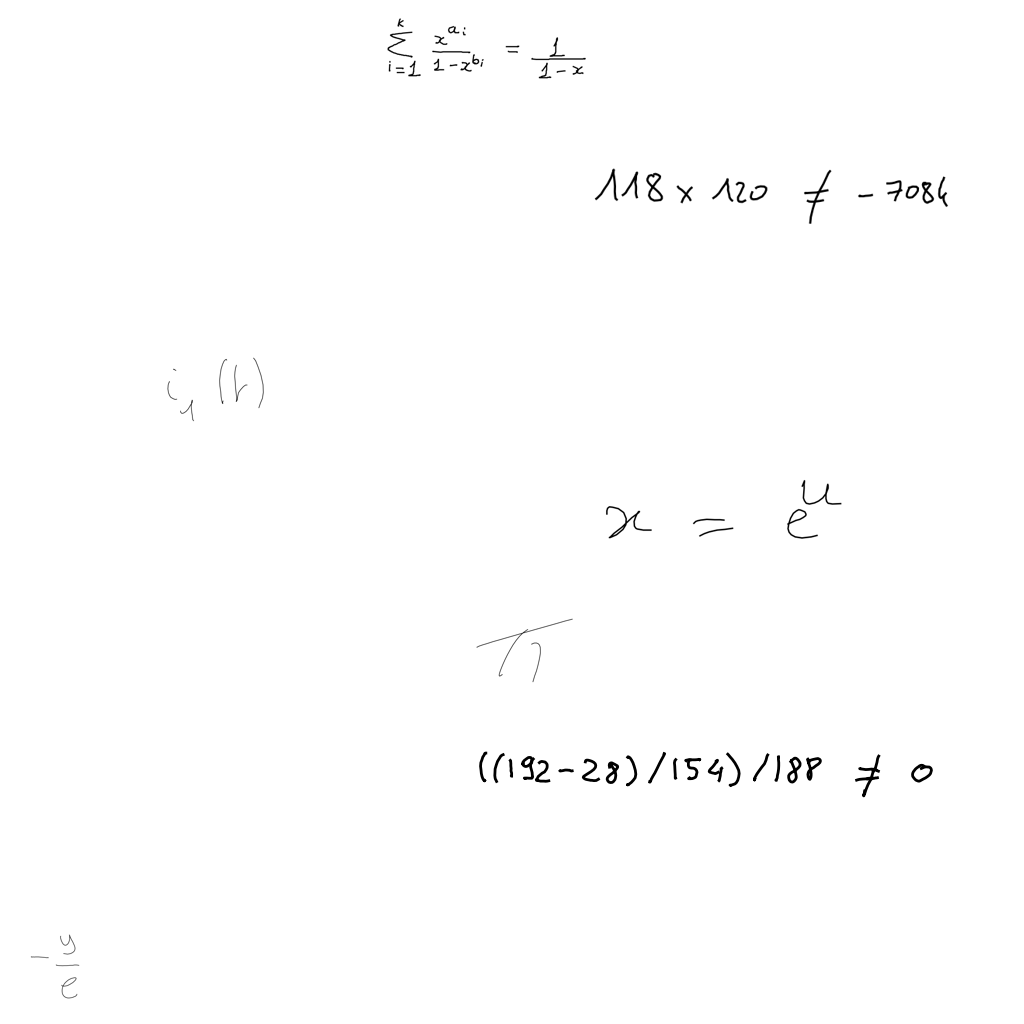 \sum_{i=1}^{k} \frac{x^{a_i}}{1-x^{b_i}} = \frac{1}{1-x}
118 × 120 ≠ -7084
i_1(t)
x = e^u
π
((192-28)/154)/188 ≠ 0
-\frac{y}{e}